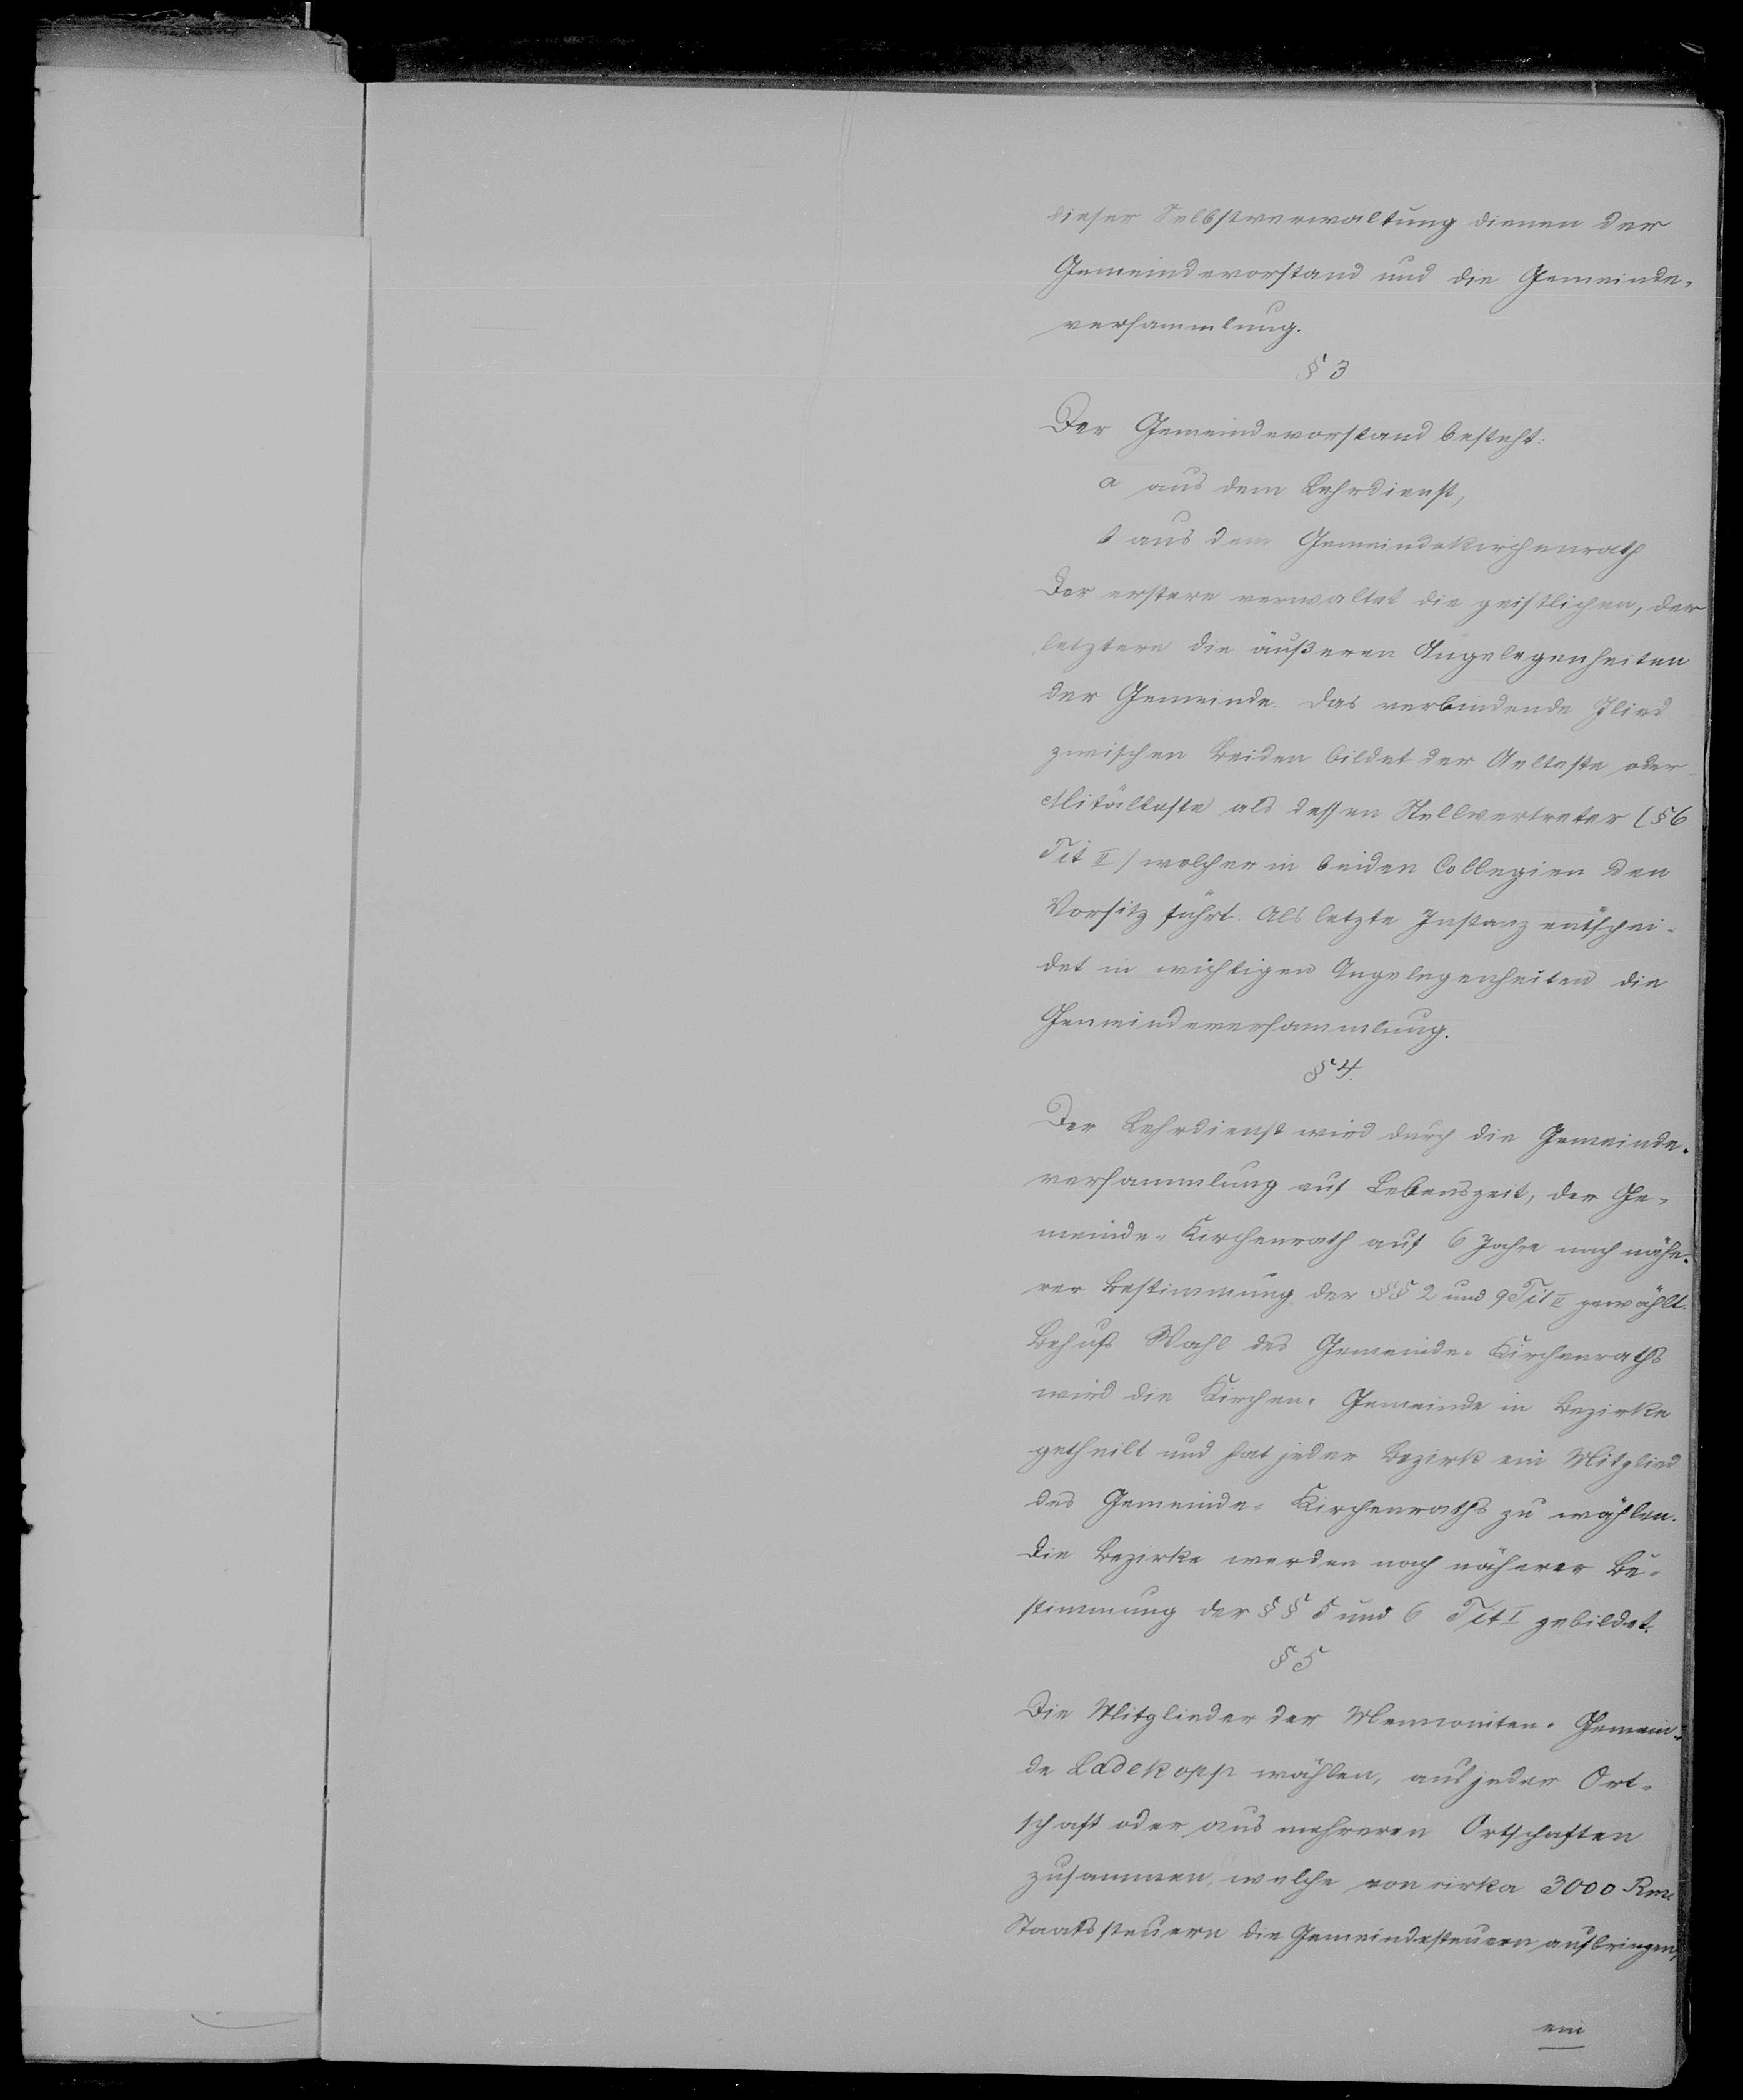 dieser Selbstverwaltung dienen der
Gemeindevorstand und die Gemeinde-
versammlung.
§ 3
Der Gemeindevorstand besteht:
a aus dem Lehrdienst,
b aus dem Gemeindekirchenrath
Der erstere verwaltet die geistlichen, der
letztere die äußeren Angelegenheiten
der Gemeinde. Das verbindende Glied
zwischen Beiden bildet der Aelteste oder
Mitälteste als dessen Stellvertreter (§ 6
Tit II) welcher in beiden Collegien den
Vorsitz führt. Als letzte Instanz entschei-
det in wichtigen Angelegenheiten die
Gemeindeversammlung.
§ 4.
Der Lehrdienst wird durch die Gemeinde-
versammlung auf Lebenszeit, der Ge-
meinde-Kirchenrath auf 6 Jahre nach nähe-
rer Bestimmung der §§ 2 und 9 Tit II gewählt.
Behufs Wahl des Gemeinde-Kirchenraths
wird die Kirchen-Gemeinde in Bezirke
getheilt und hat jeder Bezirk ein Mitglied
des Gemeinde-Kirchenraths zu wählen.
Die Bezirke werden nach näherer Be-
stimmung der §§ 5 und 6 Tit I gebildet.
§ 5
Die Mitglieder der Mennoniten-Gemein-
de Ladekopp wählen, aus jeder Ort-
schaft oder aus mehreren Ortschaften
zusammen, welche von cirka 3000 Rm.
Staatssteuern die Gemeindesteuern aufbringen,
ein